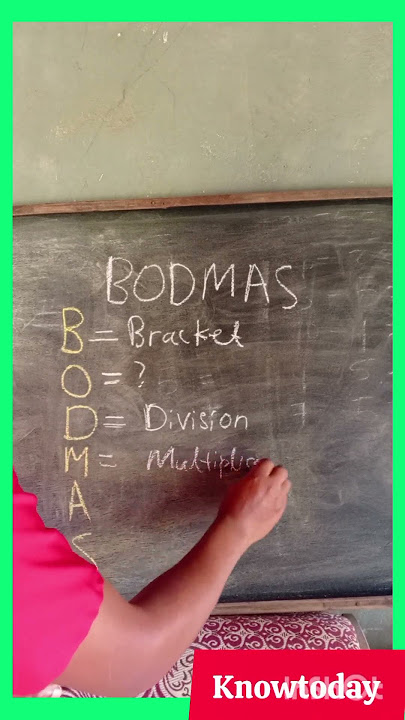 BODMAS
B = Bracket
O = ?
D = Division
M = Multiplic
A
S
Knowtoday